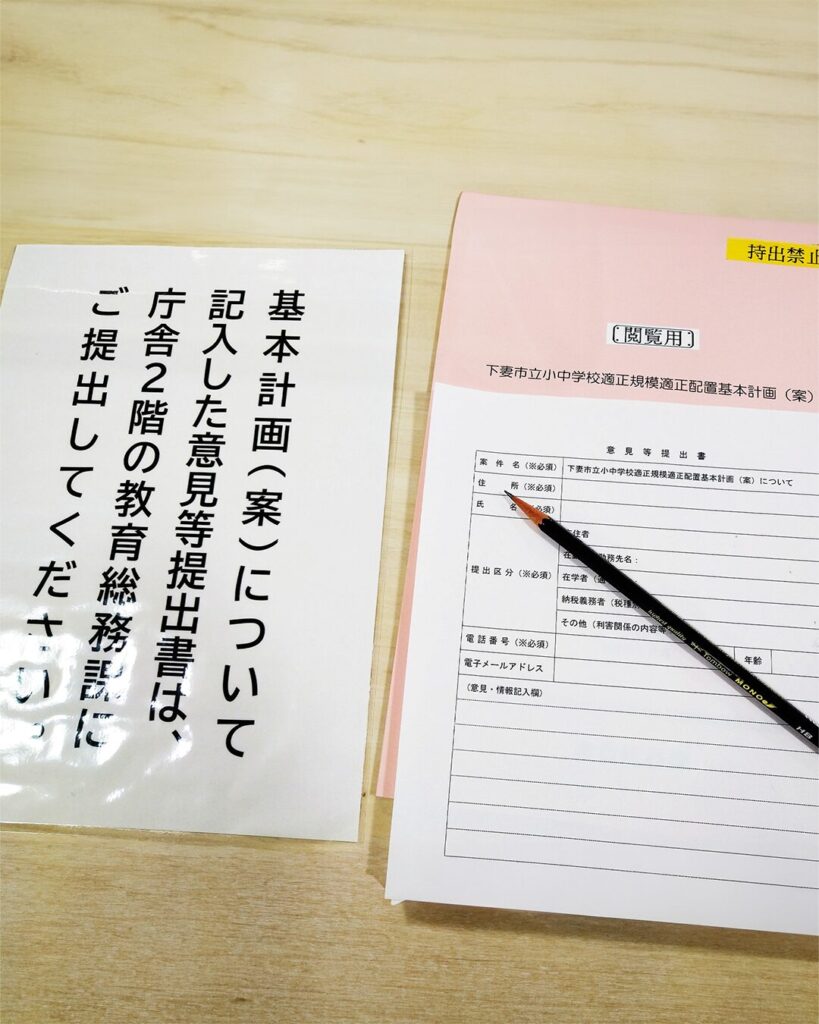 基本計画（案）について
記入した意見等提出書は、
庁舎２階の教育総務課に
ご提出してください。
持出禁止
〔閲覧用〕
下妻市立小中学校適正規模適正配置基本計画（案）
意見等提出書
案件名（※必須） 下妻市立小中学校適正規模適正配置基本計画（案）について
住所（※必須）
氏名（※必須）
提出区分（※必須）
在住者
勤務先名：
在学者（
納税義務者（税種
その他（利害関係の内容等
電話番号（※必須） 年齢
電子メールアドレス
（意見・情報記入欄）
Tombow MONO HB